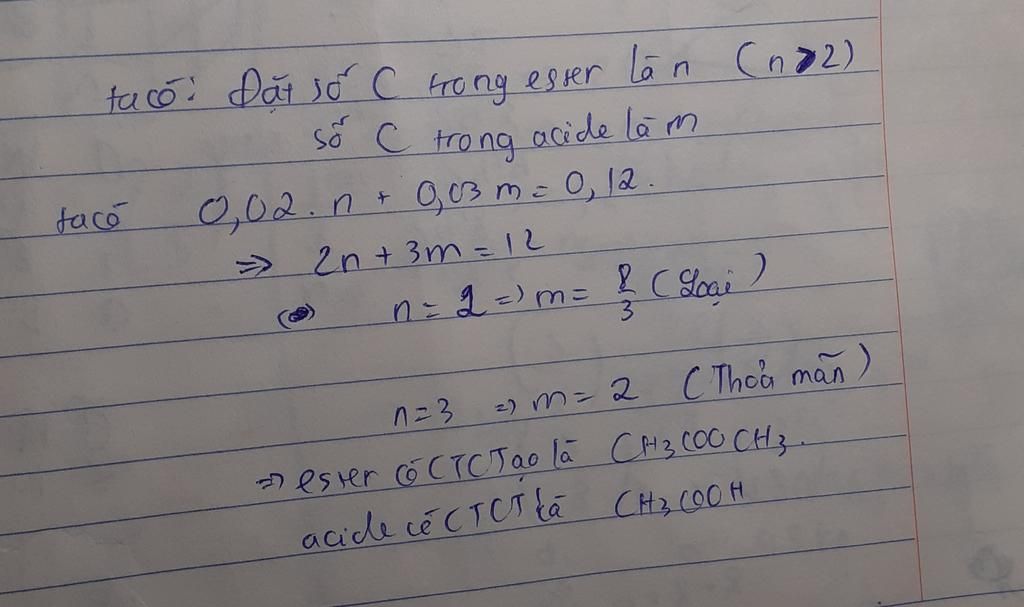 ta có: Đặt số C trong esser là n (n>2)
số C trong acide là m
ta có 0,02.n + 0,03m = 0,12.
=> 2n + 3m = 12
n = 2 => m = 8/3 (Loại)
n=3 => m = 2 (Thoả mãn)
=> ester có CTCTạo là CH3COOCH3.
acide có CTCT là CH3COOH